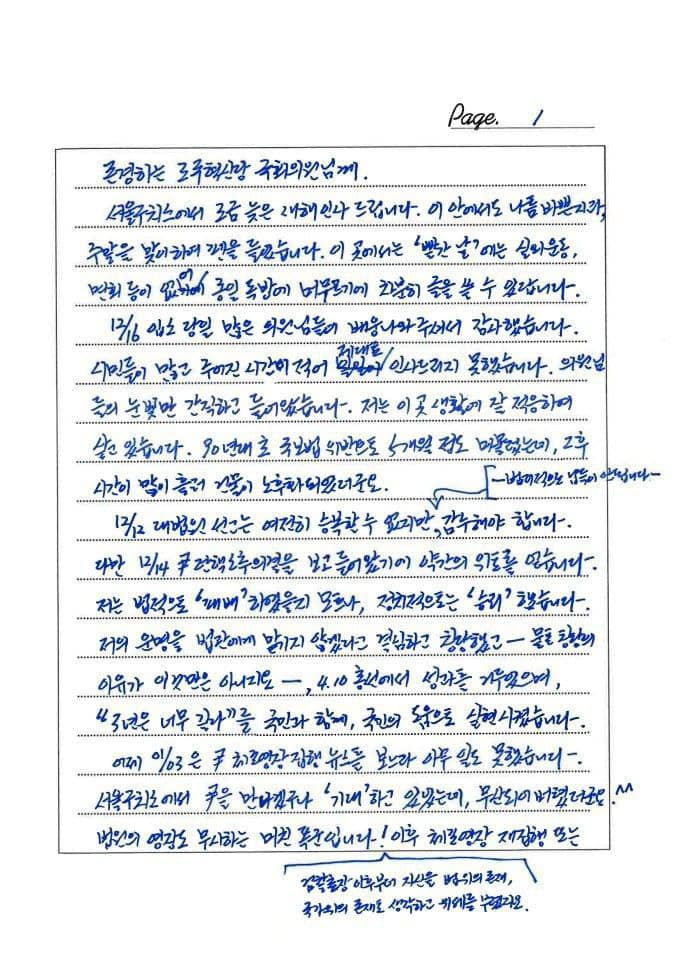 Page. 1
존경하는 조국혁신당 국회의원님께.
서울구치소에서 조금 늦은 새해인사 드립니다. 이 안에서도 나름 바쁜지라,
주말을 맞이하여 펜을 들었습니다. 이 곳에서는 '빨간 날'에는 실외운동,
면회 등이 없어 종일 독방에 머무르기에 차분히 글을 쓸 수 있답니다.
12/16 입소 당일 많은 의원님들이 배웅나와주셔서 감사했습니다.
시민들이 많고 주어진 시간이 적어 제대로 인사드리지 못했습니다. 의원님
들의 눈빛만 간직하고 들어왔습니다. 저는 이 곳 생활에 잘 적응하여
살고 있습니다. 90년대 초 국보법 위반으로 5개월 정도 머물렀는데, 그후
시간이 많이 흘러 건물이 노후화되었더군요.
- 법리적으로 납득이 안됩니다 -
12/12 대법원 선고는 여전히 승복할 수 없지만, 감수해야 합니다.
다만 12/14 尹 탄핵소추의결을 보고 들어왔기에 약간의 위로를 얻습니다.
저는 법적으로 '패배'하였을지 모르나, 정치적으로는 '승리'했습니다.
저의 운명을 법관에게 맡기지 않겠다고 결심하고 창당했고 — 물론 창당의
이유가 이것만은 아니지요 —, 4.10 총선에서 성과를 거두었으며,
"3년은 너무 길다"를 국민과 함께, 국민의 도움으로 실현시켰습니다.
어제 01/03은 尹 체포영장집행 뉴스를 보느라 아무 일도 못했습니다.
서울구치소에서 尹을 만나겠구나 '기대'하고 있었는데, 무산되어 버렸더군요. ^^
법원의 영장도 무시하는 미친 폭군입니다! 이후 체포영장 재집행 또는
검찰총장 이후부터 자신을 법위의 존재,
국가위의 존재로 생각하고 위세를 부렸지요.